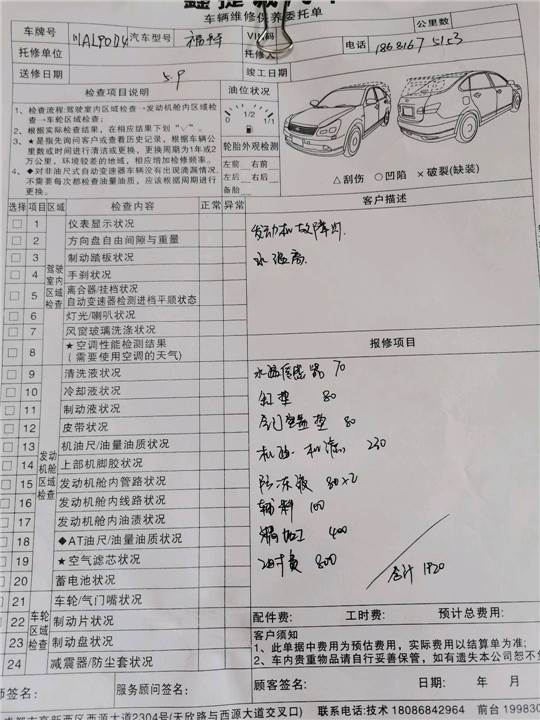 车辆维修保养委托单
车牌号 汽车型号 福特 VIN码 公里数
托修单位 托修人 电话
送修日期 5.9 竣工日期
检查项目说明 油位状况
1、检查流程:驾驶室内区域检查→发动机舱内区域检查→车轮区域检查。
2、根据实际检查结果，在相应结果下划“√”。
3、★是指先询问客户或查看历史记录，根据车辆公里数或时间进行清洁或更换，更换周期为1年或2万公里，环境较差的地域，相应增加检修频率。
4、◆对非油尺式自动变速器车辆没有出现滴漏情况，不需要每次都检查油量油质，应该根据周期进行更换。
0 1/2 1/1
轮胎外观检测
左前 右前
左后 右后
备胎
△刮伤 ○凹陷 ×破裂(缺装)
选择 项目 区域 检查内容 正常 异常 客户描述
驾驶室内区域检查
1 仪表显示状况
2 方向盘自由间隙与重量
3 制动踏板状况
4 手刹状况
5 离合器/挂档状况
自动变速器检测进档平顺状态
6 灯光/喇叭状况
7 风窗玻璃洗涤状况
8 ★空调性能检测结果
(需要使用空调的天气)
发动机故障灯
水温高
报修项目
发动机舱区域检查
9 清洗液状况
10 冷却液状况
11 制动液状况
12 皮带状况
13 机油尺/油量油质状况
14 上部机脚胶状况
15 发动机舱内管路状况
16 发动机舱内线路状况
17 发动机舱内油渍状况
18 ◆AT油尺/油量油质状况
19 ★空气滤芯状况
20 蓄电池状况
车轮区域检查
21 车轮/气门嘴状况
22 制动片状况
23 制动盘状况
24 减震器/防尘套状况
水温传感器 70
缸垫 80
气门室盖垫 80
机油 机滤 230
防冻液 80×2
辅料 100
加工 400
800
合计 1820
配件费: 工时费: 预计总费用:
客户须知
1、此单据中费用为预估费用，实际费用以结算单为准;
2、车内贵重物品请自行妥善保管，如有遗失本公司恕不负
师签名: 服务顾问签名: 顾客签名: 日期: 年 月
成都市高新西区西源大道2304号(天欣路与西源大道交叉口) 联系电话:技术 18086842964 前台 199830